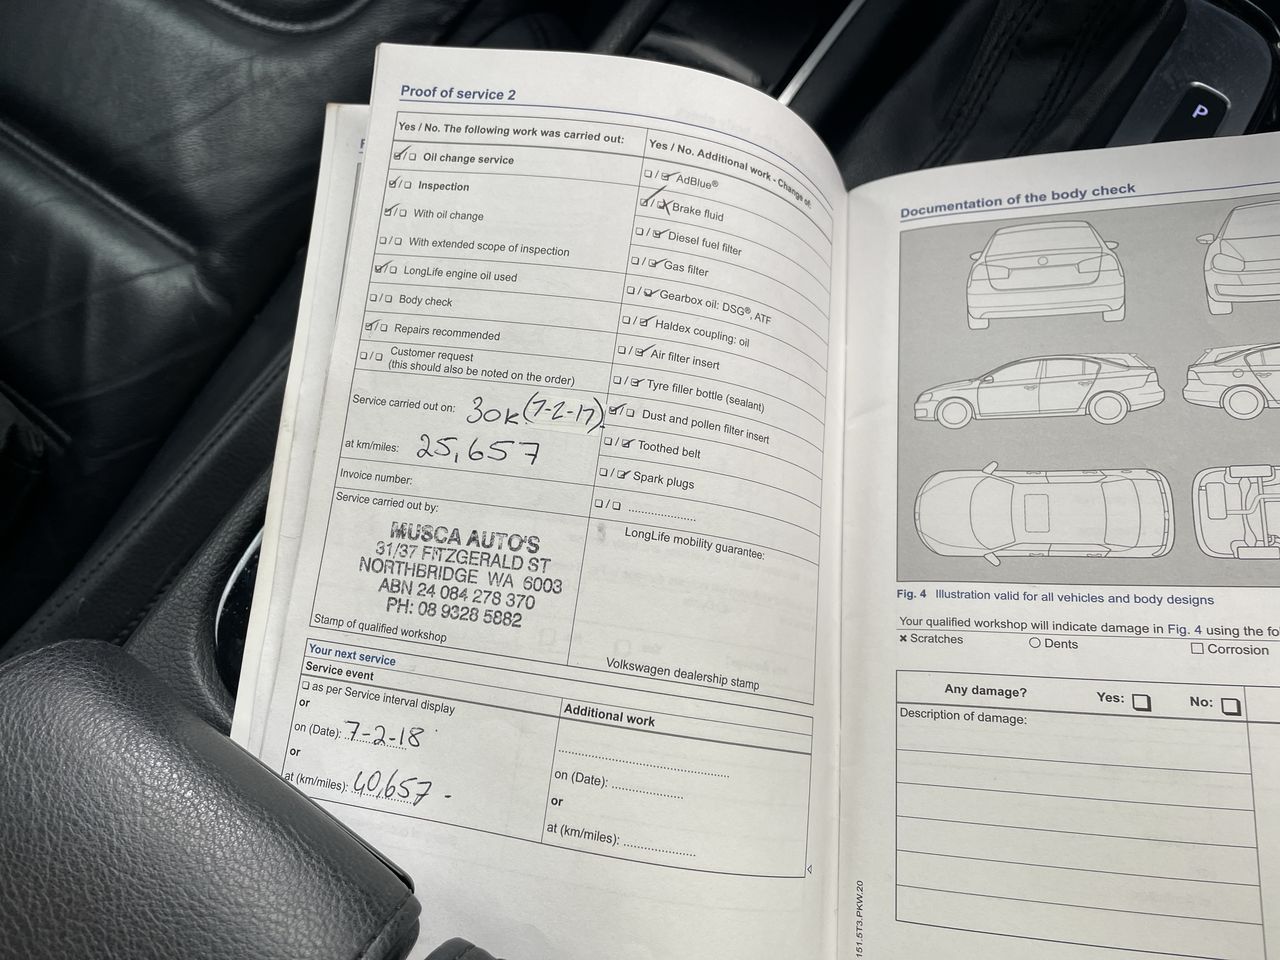 Proof of service 2
Yes / No. The following work was carried out:
☑/☐ Oil change service
☑/☐ Inspection
☑/☐ With oil change
☐/☐ With extended scope of inspection
☑/☐ LongLife engine oil used
☐/☐ Body check
☑/☐ Repairs recommended
☐/☐ Customer request
(this should also be noted on the order)
Service carried out on: 30K (7-2-17)
at km/miles: 25,657
Invoice number:
Service carried out by:
MUSCA AUTO'S
31/37 FITZGERALD ST
NORTHBRIDGE WA 6003
ABN 24 084 278 370
PH: 08 9328 5882
Stamp of qualified workshop
Yes / No. Additional work - Change of:
☐/☑ AdBlue®
☑/☒ Brake fluid
☐/☑ Diesel fuel filter
☐/☑ Gas filter
☐/☑ Gearbox oil: DSG®, ATF
☐/☑ Haldex coupling: oil
☐/☑ Air filter insert
☐/☑ Tyre filler bottle (sealant)
☑/☐ Dust and pollen filter insert
☐/☑ Toothed belt
☐/☑ Spark plugs
☐/☐ ....................
LongLife mobility guarantee:
Volkswagen dealership stamp
Your next service
Service event
☐ as per Service interval display
or
on (Date): 7-2-18
or
at (km/miles): 40,657 -
Additional work
on (Date): ....................
or
at (km/miles): ....................
Documentation of the body check
Fig. 4 Illustration valid for all vehicles and body designs
Your qualified workshop will indicate damage in Fig. 4 using the fo
× Scratches
○ Dents
☐ Corrosion
Any damage? Yes: ☐ No: ☐
Description of damage:
151.5T3.PKW.20
P